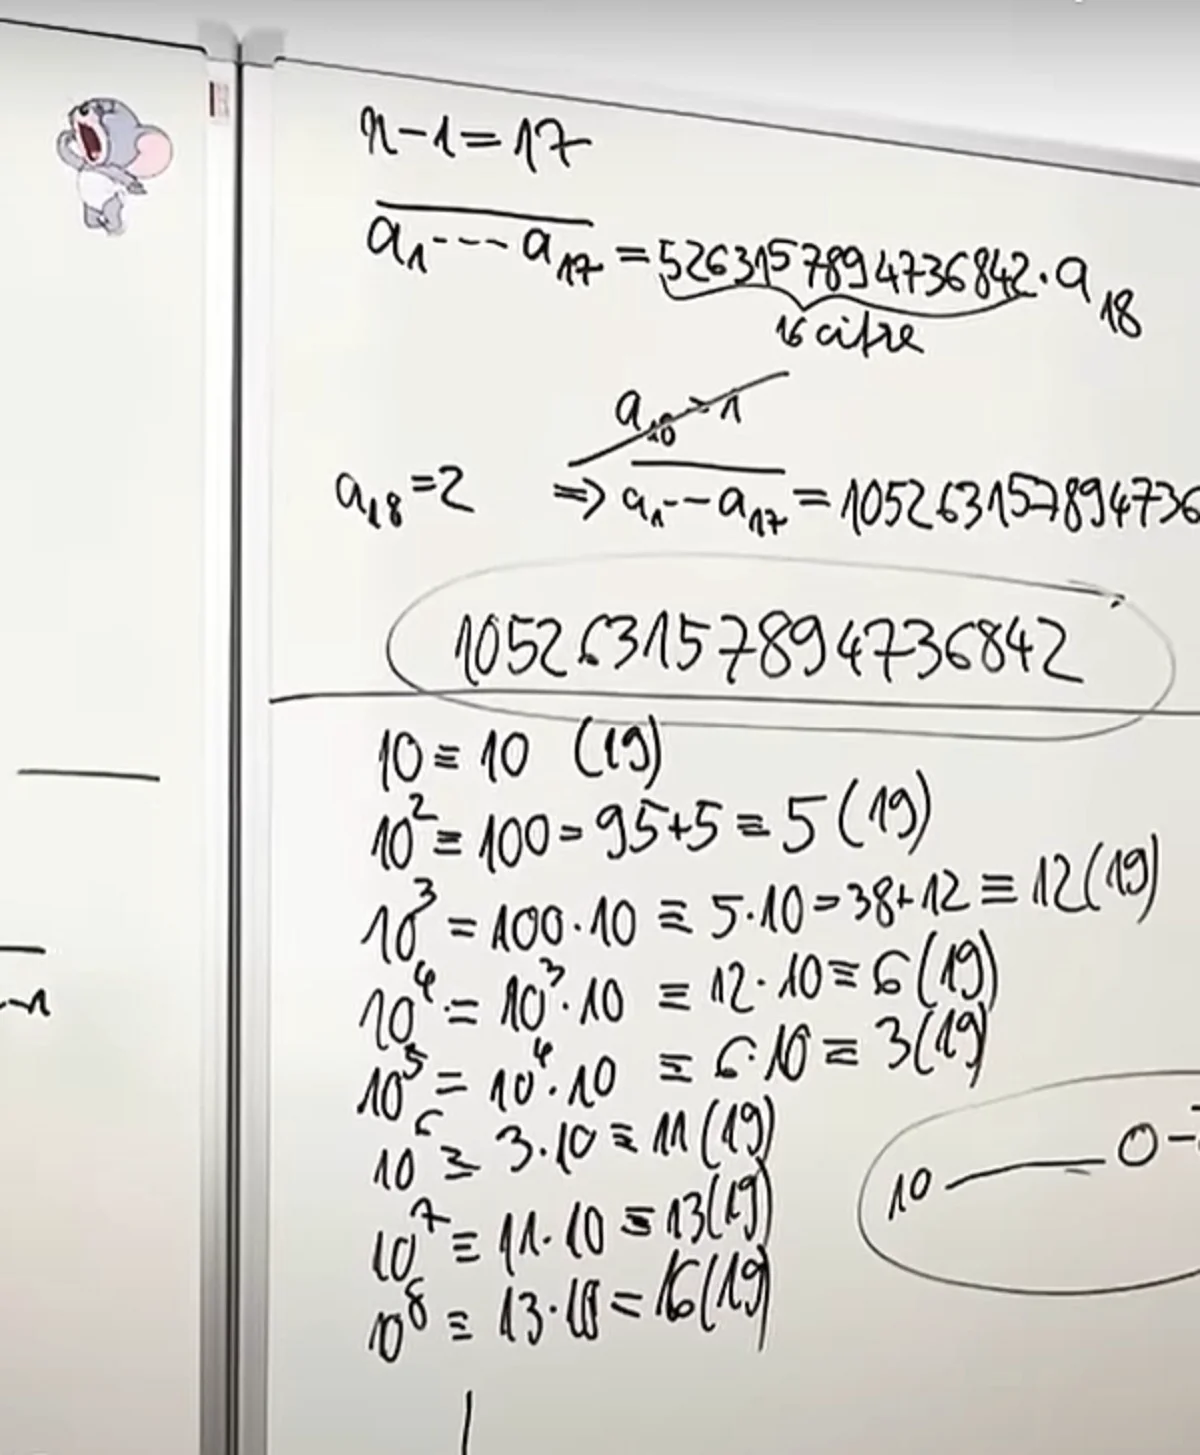 n-1=17
a₁---a₁₇ = 5263157894736842·a₁₈
16 cifre
a₁₈=2 ⇒ a₁--a₁₇ = 105263157894736
105263157894736842
10≡10 (19)
10²≡100=95+5≡5(19)
10³=100·10≡5·10=38+12≡12(19)
10⁴=10³·10≡12·10≡6(19)
10⁵=10⁴·10≡6·10≡3(19)
10⁶≡3·10≡11(19)
10 — 0-
10⁷≡11·10≡13(19)
10⁸≡13·10=16(19)